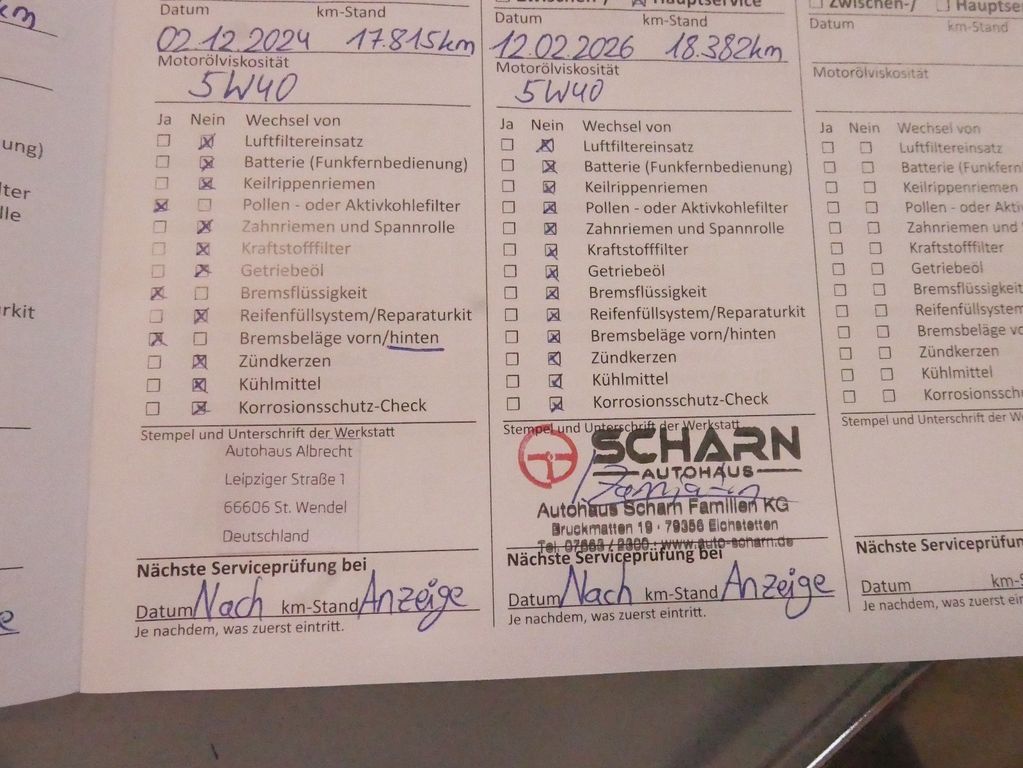 km
ung)
lter
lle
rkit
e
Datum km-Stand
02.12.2024 17.815km
Motorölviskosität
5W40
Ja Nein Wechsel von
Luftfiltereinsatz
Batterie (Funkfernbedienung)
Keilrippenriemen
Pollen - oder Aktivkohlefilter
Zahnriemen und Spannrolle
Kraftstofffilter
Getriebeöl
Bremsflüssigkeit
Reifenfüllsystem/Reparaturkit
Bremsbeläge vorn/hinten
Zündkerzen
Kühlmittel
Korrosionsschutz-Check
Stempel und Unterschrift der Werkstatt
Autohaus Albrecht
Leipziger Straße 1
66606 St. Wendel
Deutschland
Nächste Serviceprüfung bei
Datum Nach km-Stand Anzeige
Je nachdem, was zuerst eintritt.
Zwischen-/ Hauptservice
Datum km-Stand
12.02.2026 18.382km
Motorölviskosität
5W40
Ja Nein Wechsel von
Luftfiltereinsatz
Batterie (Funkfernbedienung)
Keilrippenriemen
Pollen - oder Aktivkohlefilter
Zahnriemen und Spannrolle
Kraftstofffilter
Getriebeöl
Bremsflüssigkeit
Reifenfüllsystem/Reparaturkit
Bremsbeläge vorn/hinten
Zündkerzen
Kühlmittel
Korrosionsschutz-Check
Stempel und Unterschrift der Werkstatt
SCHARN
AUTOHAUS
Autohaus Scharn Familien KG
Bruckmatten 19 · 79356 Eichstetten
Tel. 07663 / 2300 · www.auto-scharn.de
Nächste Serviceprüfung bei
Datum Nach km-Stand Anzeige
Je nachdem, was zuerst eintritt.
Zwischen-/ Hauptse
Datum km-Stand
Motorölviskosität
Ja Nein Wechsel von
Luftfiltereinsatz
Batterie (Funkfern
Keilrippenriemen
Pollen - oder Akti
Zahnriemen und S
Kraftstofffilter
Getriebeöl
Bremsflüssigkeit
Reifenfüllsystem
Bremsbeläge vo
Zündkerzen
Kühlmittel
Korrosionsschutz
Stempel und Unterschrift der W
Nächste Serviceprüfun
Datum km-S
Je nachdem, was zuerst ein